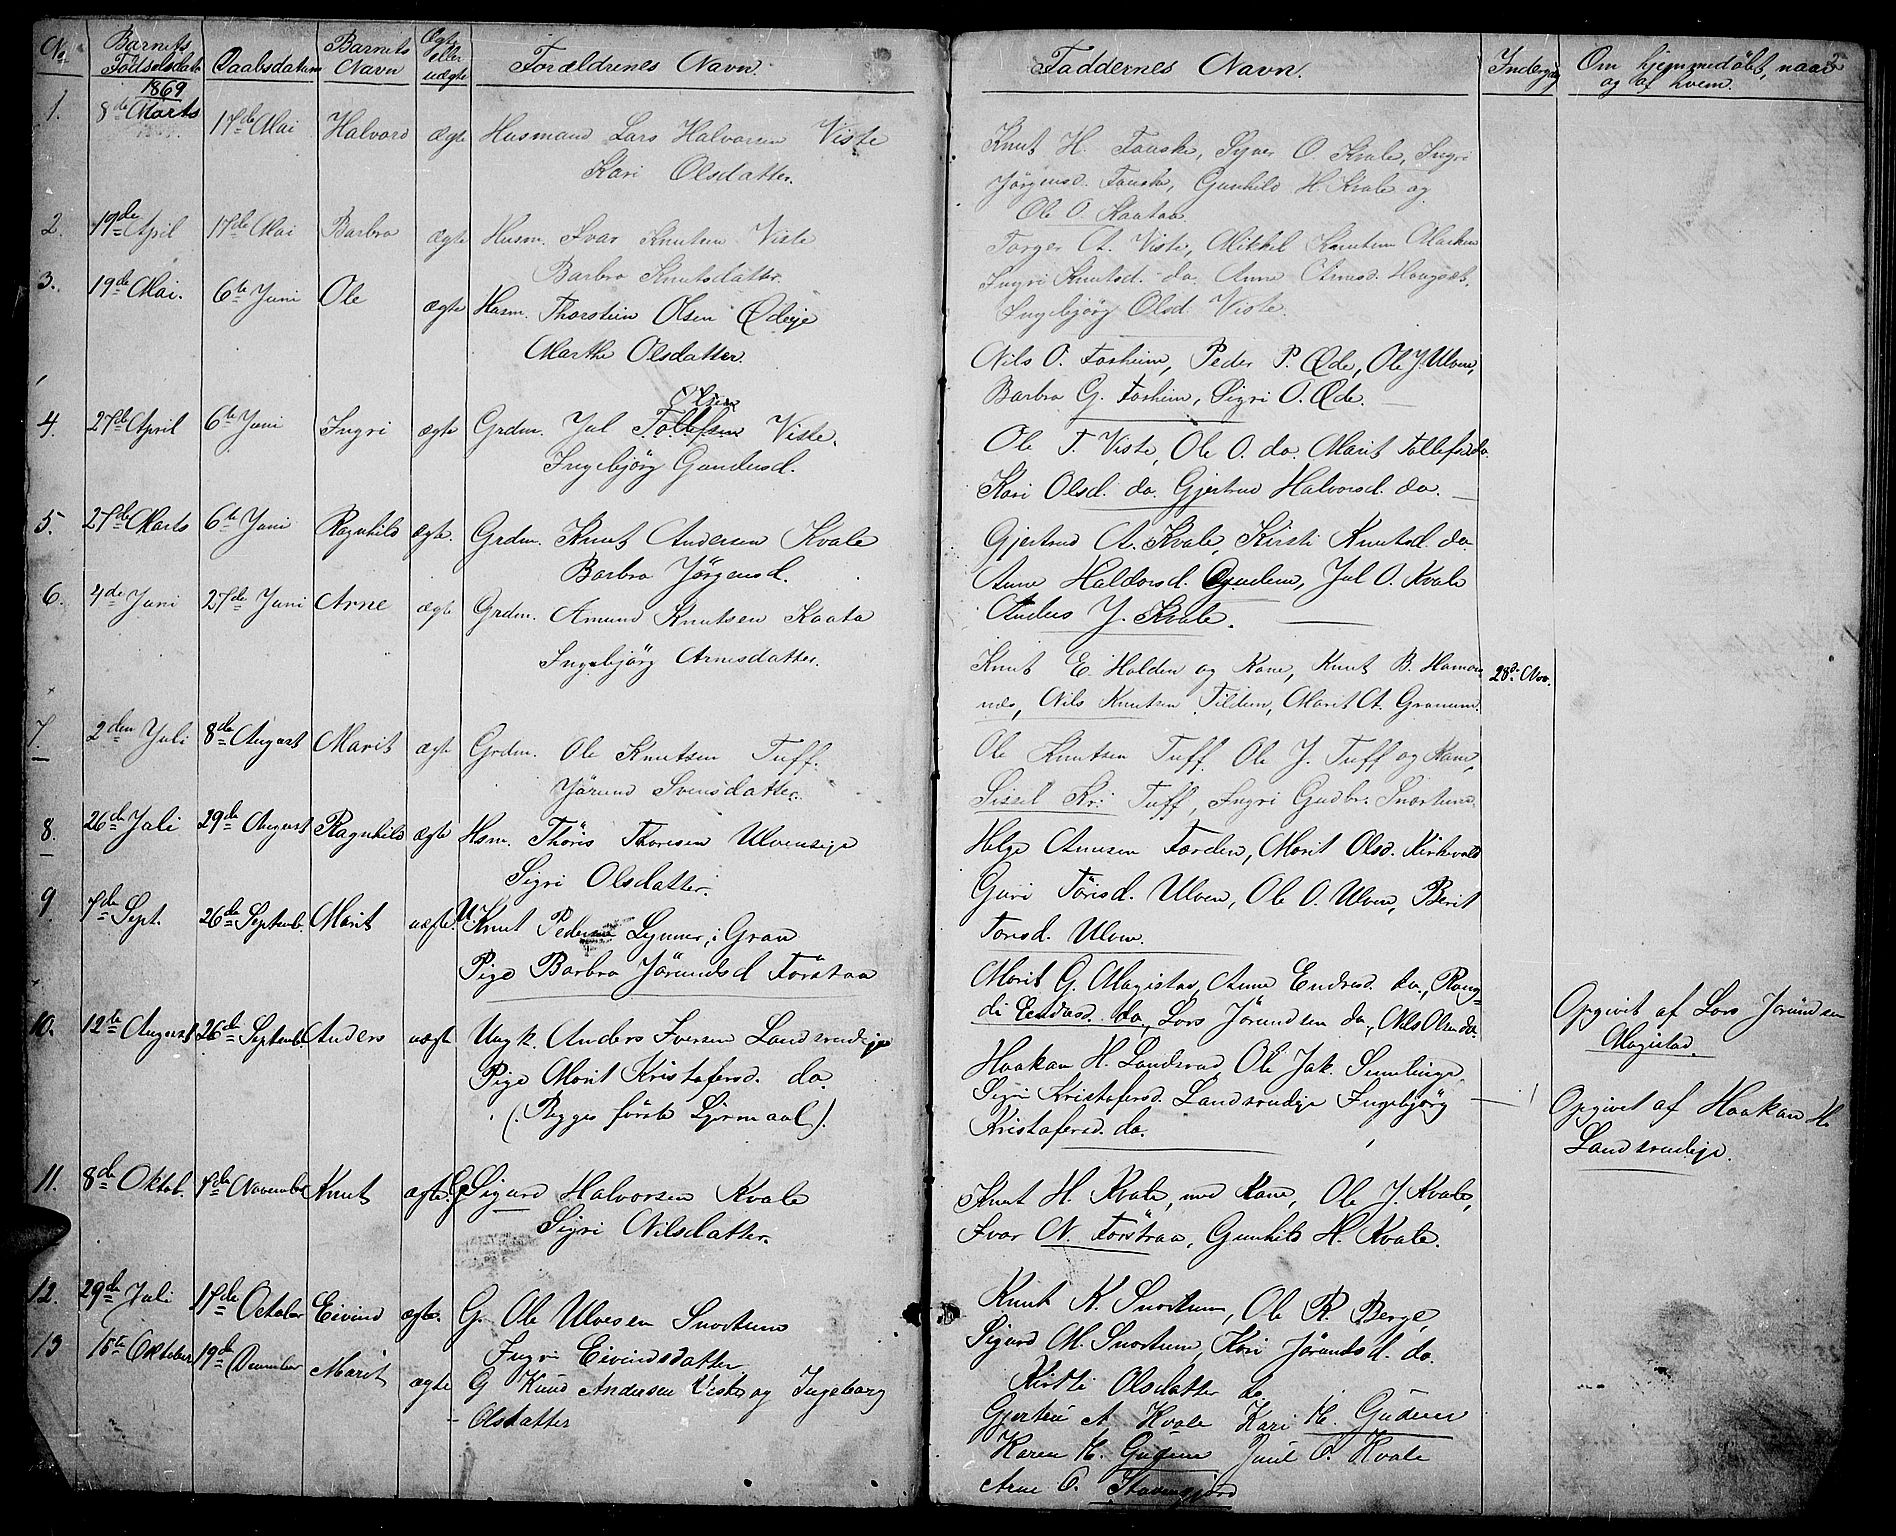 No Barnets Fødselsdat Daabsdatum Barnets Navn Ægte eller uægte Forældrenes Navn.
1869
1. 8de Marts 17de Mai Halvard ægte Husmand Lars Halvorsen Viste
Kari Olsdatter.
2. 19de April 17de Mai Barbro ægte Husm. Ivar Knutsen Viste
Barbro Knutsdatter.
3. 19de Mai. 6te Juni Ole ægte Husm. Thorstein Olsen Ødeije
Marthe Olsdatter.
Olsen
4. 27de April 6te Juni Ingri ægte Grdm. Jul Tollefsen Viste.
Ingebjörg Gundersd.
5. 27de Marts 6te Juni Ragnhild ægte. Grdm. Knut Andersen Kvale
Barbro Jörgensd.
6. 4de Juni 27de Juni Arne ægte Grdm. Amund Knutsen Kaata
Ingebjörg Arnesdatter.
7. 2den Juli 8de August Marit ægte Grdm. Ole Knutsen Tuff.
Jörund Svensdatter.
8. 26de Juli 29de August Ragnhild ægte Hsm. Thöris Thoresen Ulveneije
Sigri Olsdatter.
9. 7de Sept. 26de Septemb. Marit uægte. U. Knut Pedersen Lynner, i Gran
Pige Barbro Jörundsd Törstaa
10. 12te August 26de Septemb. Anders uægte Ungk. Anders Iversen Landsrudeije
Pige Marit Kristofersd. do.
(Begges förste Leirmaal).
11. 8de Oktob. 7de November Knut ægte. G. Sigurd Halvorsen Kvale
Sigri Nilsdatter.
12. 29de Juli 17de October Eivind ægte. G. Ole Ulvesen Snortum
Ingri Eivindsdatter
13 15te Oktober 19de December Marit ægte G Knud Andersen Viste og Ingeborg
Olsdatter
Faddernes Navn. Indergang Om hjemmedøbt, naar og af hvem.
Knut H. Fauske, Syver O. Kvale, Ingri
Jörgensd. Fauske, Gunhild H. Kvale og
Ole O. Kaataa
Torger A. Viste, Mikkel Knutsen Marken
Ingri Knutsd. do. Anne Arnesd. Haugset,
Ingebjörg Olsd. Viste.
Nils O. Forheim, Peder P. Øde, Ole J. Ulven,
Barbro G. Forheim, Sigri O. Øde.
Ole T. Viste, Ole O. do. Marit Tollefsd do
Kari Olsd. do. Gjertrud Halvorsd. do.
Gjertrud A. Kvale, Kirsti Knutsd. do
Anne Haldorsd. Gudem, Jul O. Kvale
Anders J. Kvale.
Knut E. Halden og Kone, Knut B. Hamar- 28de Nov.
nes, Nils Knutsen Tilden, Marit A. Granum.
Ole Knutsen Tuff. Ole J. Tuff og Kone,
Sissel Kr: Tuff, Ingri Gudbr: Snortum
Helge Arnesen Førden, Marit Olsd. Kirkvold
Guri Törisd. Ulven, Ole O. Ulven, Berit
Torisd. Ulven.
Marit G. Magistad, Anne Endresd. do., Rang-
di Endresd. do, Lars Jörundsen do, Nils Olsen do. Opgivet af Lars Jörundsen
Magistad.
Haakan H. Landsrud, Ole Jak. Semelinge
Sigri Kristofersd. Landsrudeije Ingebjörg
Kristofersd. do. Opgivet af Haakan H.
Landsrudeije.
Knut H. Kvale, med Kone, Ole J. Kvale,
Ivar N. Törstraa, Gunhild H. Kvale.
Knut K. Snortum, Ole R. Berge,
Sigurd M. Snortum, Kari Jörundsd. do.
Kirsti Olsdatter do.
Gjertru A Kvale Kari H. Gudem
Karen H. Gudem Juul O. Kvale
Arne O.